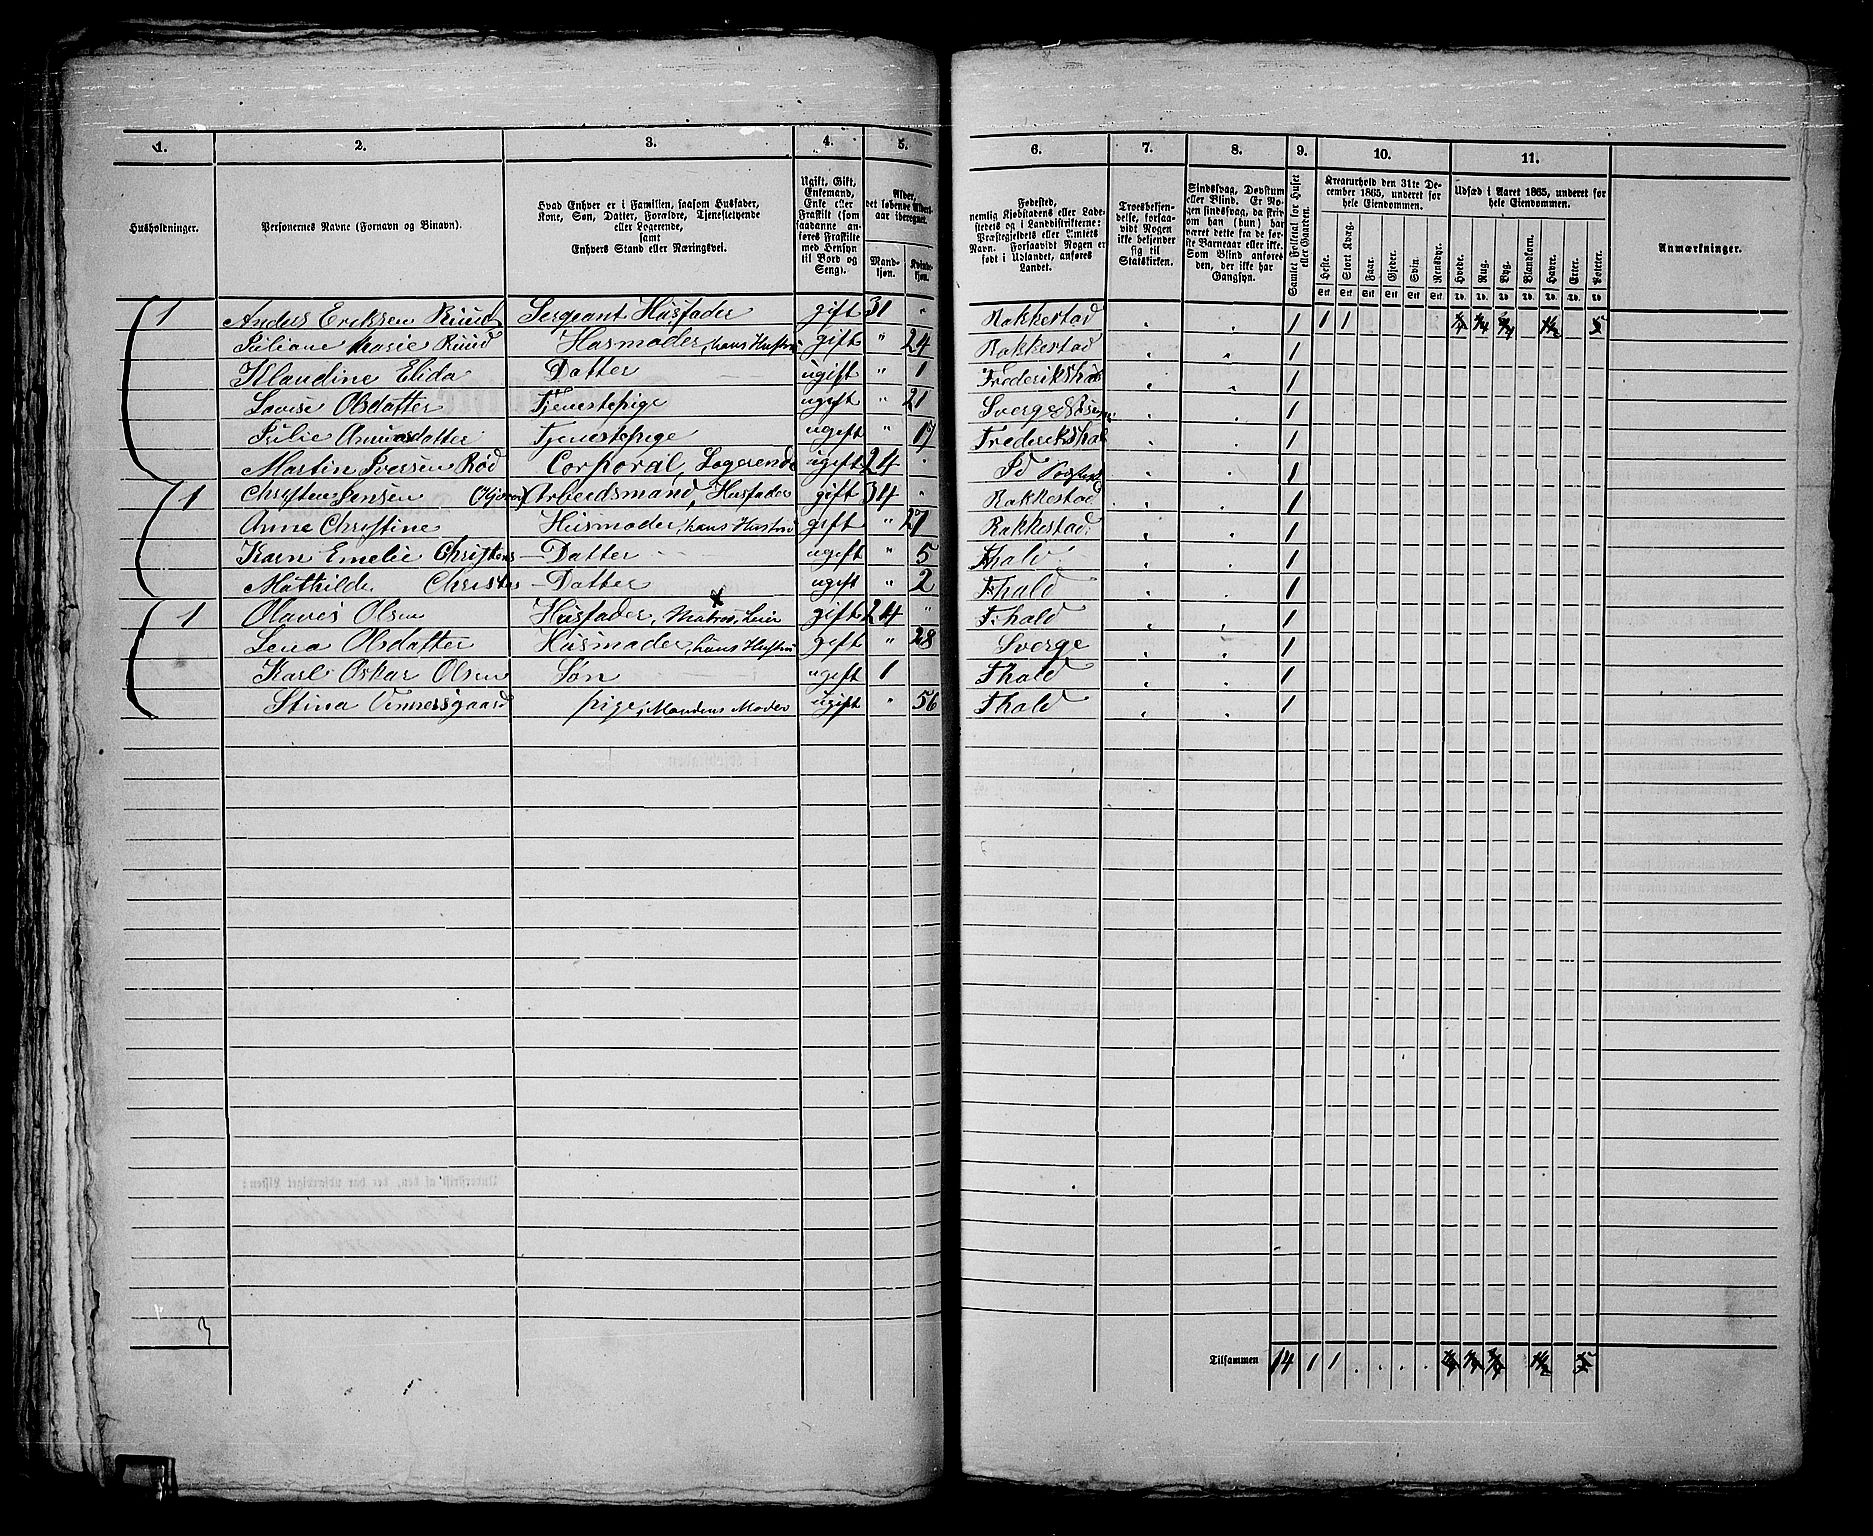 1. 2. 3. 4. 5. 6. 7. 8. 9. 10. 11.
Husholdninger.
Personernes Navne (Fornavn og Binavn).
Hvad Enhver er i Familien, saasom Husfader,
Kone, Søn, Datter, Forældre, Tjenestetyende
eller Logerende,
samt
Enhvers Stand eller Næringsvei.
Ugift, Gift,
Enkemand,
Enke eller
Fraskilt (som
saadanne an-
føres Fraskilte
med Hensyn
til Bord og
Seng).
Alder,
det løbende Alders-
aar iberegnet.
Mand-
kjøn.
Kvinde-
kjøn.
Fødested,
nemlig Kjøbstadens eller Lade-
stedets eller i Landdistrikterne:
Præstegjeldets eller Amtets
Navn. Forsaavidt Nogen er
født i Udlandet, anføres
Landet.
Troesbekjen-
delse, forsaa-
vidt Nogen
ikke bekjender
sig til
Statskirken.
Sindssvag, Døvstum
eller Blind. Er No-
gen sindssvag, da skriv
om han (hun) har
været dette fra de før-
ste Barneaar eller ikke.
Som Blind anføres
den, der ikke har
Gangsyn.
Samlet Folketal for Huset
eller Gaarden.
Kreaturhold den 31te De-
cember 1865, underet for
hele Eiendommen.
Heste. Stort Kvæg. Faar. Gjeder. Svin. Rensdyr.
Stk Stk Stk Stk Stk Stk
Udsæd i Aaret 1865, underet for
hele Eiendommen.
Hvede. Rug. Byg. Blandkorn. Havre. Erter. Poteter.
Td. Td. Td. Td. Td. Td. Td.
Anmærkninger.
1 Anders Eriksen Ruud Sergeant Husfader gift 31 " Rakkestad 1 1 1 5
Juliane Marie Ruud Husmoder, hans Hustru gift " 24 Rakkestad 1
Klaudine Elida Datter ugift " 1 Frederikshald 1
Lovise Olsdatter Tjenestepige ugift " 21 Sverge 1
Julie Tjenestepige ugift " 17 Frederikshald 1
Martin Iversen Rød Corporal, Logerende ugift 24 Id 1
1 Christen Jensen Arbeidsmand, Husfader gift 34 " Rakkestad 1
Anne Christine Husmoder, hans Hustru gift " 27 Rakkestad 1
Karn Emelie Christens Datter ugift " 5 Fhald 1
Mathilde Christens Datter ugift " 2 Fhald 1
1 Olavis Olsen Husfader, Matros, Leier gift 24 " F:hald 1
Lena Olsdatter Husmoder, hans Hustru gift " 28 Sverge 1
Karl Oskar Olsen Søn ugift 1 Fhald 1
Stina Vennersgaard pige, Mandens Moder ugift " 56 Fhald 1
3 Tilsammen 14 1 1 . . . . 5